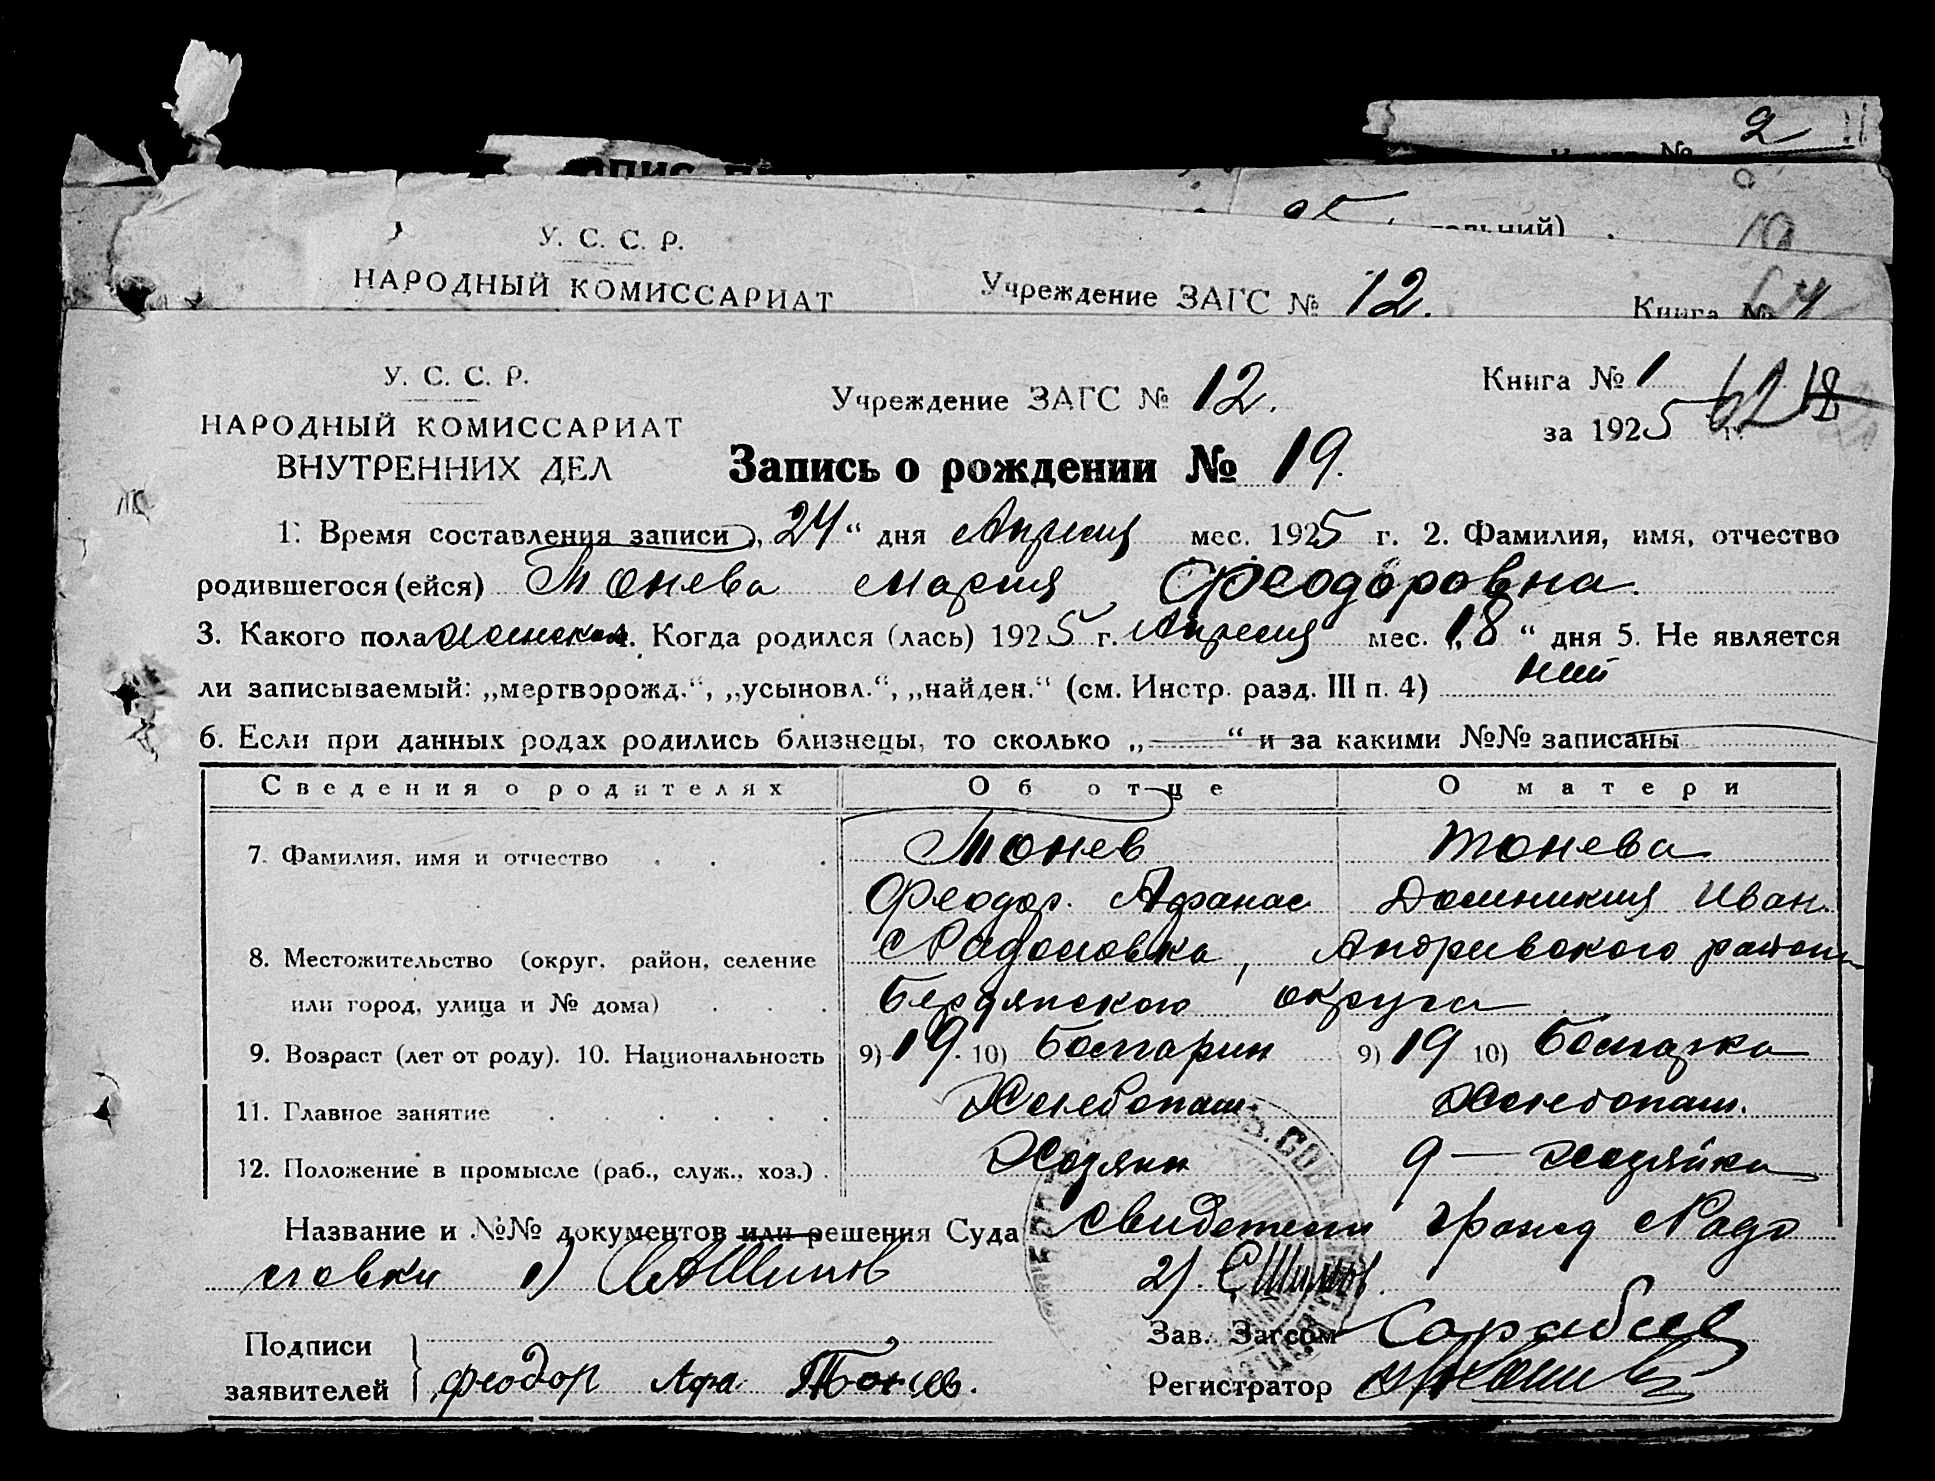 Книга № 2
У. С. С. Р.
НАРОДНЫЙ КОМИССАРИАТ
Учреждение ЗАГС № 12.
Книга №
У. С. С. Р.
НАРОДНЫЙ КОМИССАРИАТ
ВНУТРЕННИХ ДЕЛ
Учреждение ЗАГС № 12.
Книга № 1
за 1925 г.
62
Запись о рождении № 19.
1. Время составления записи „24“ дня Апреля мес. 1925 г. 2. Фамилия, имя, отчество
родившегося (ейся) Тонева Мария Феодоровна.
3. Какого пола женского 4. Когда родился (лась) 1925 г. Апреля мес. „18“ дня 5. Не является
ли записываемый: „мертворожд.“, „усыновл.“, „найден.“ (см. Инстр. разд. III п. 4)
6. Если при данных родах родились близнецы, то сколько „—“ и за какими №№ записаны
Сведения о родителях Об отце О матери
7. Фамилия, имя и отчество Тонев Тонева
Феодор. Афанас Доминикия Иван.
8. Местожительство (округ, район, селение с Радоловка, Андреевского района
или город, улица и № дома) Бердянского округа
9. Возраст (лет от роду). 10. Национальность 9) 19. 10) Болгарин 9) 19 10) Болгарка
11. Главное занятие Хлебопаш. Хлебопаш.
12. Положение в промысле (раб., служ., хоз.) Хозяин 9 — Хозяйка
Название и №№ документов или решения Суда Свидетели гражд с Радо
ловки 1) 2)
Подписи
заявителей
Феодор Афа Тонев.
Зав. Загсом
Регистратор